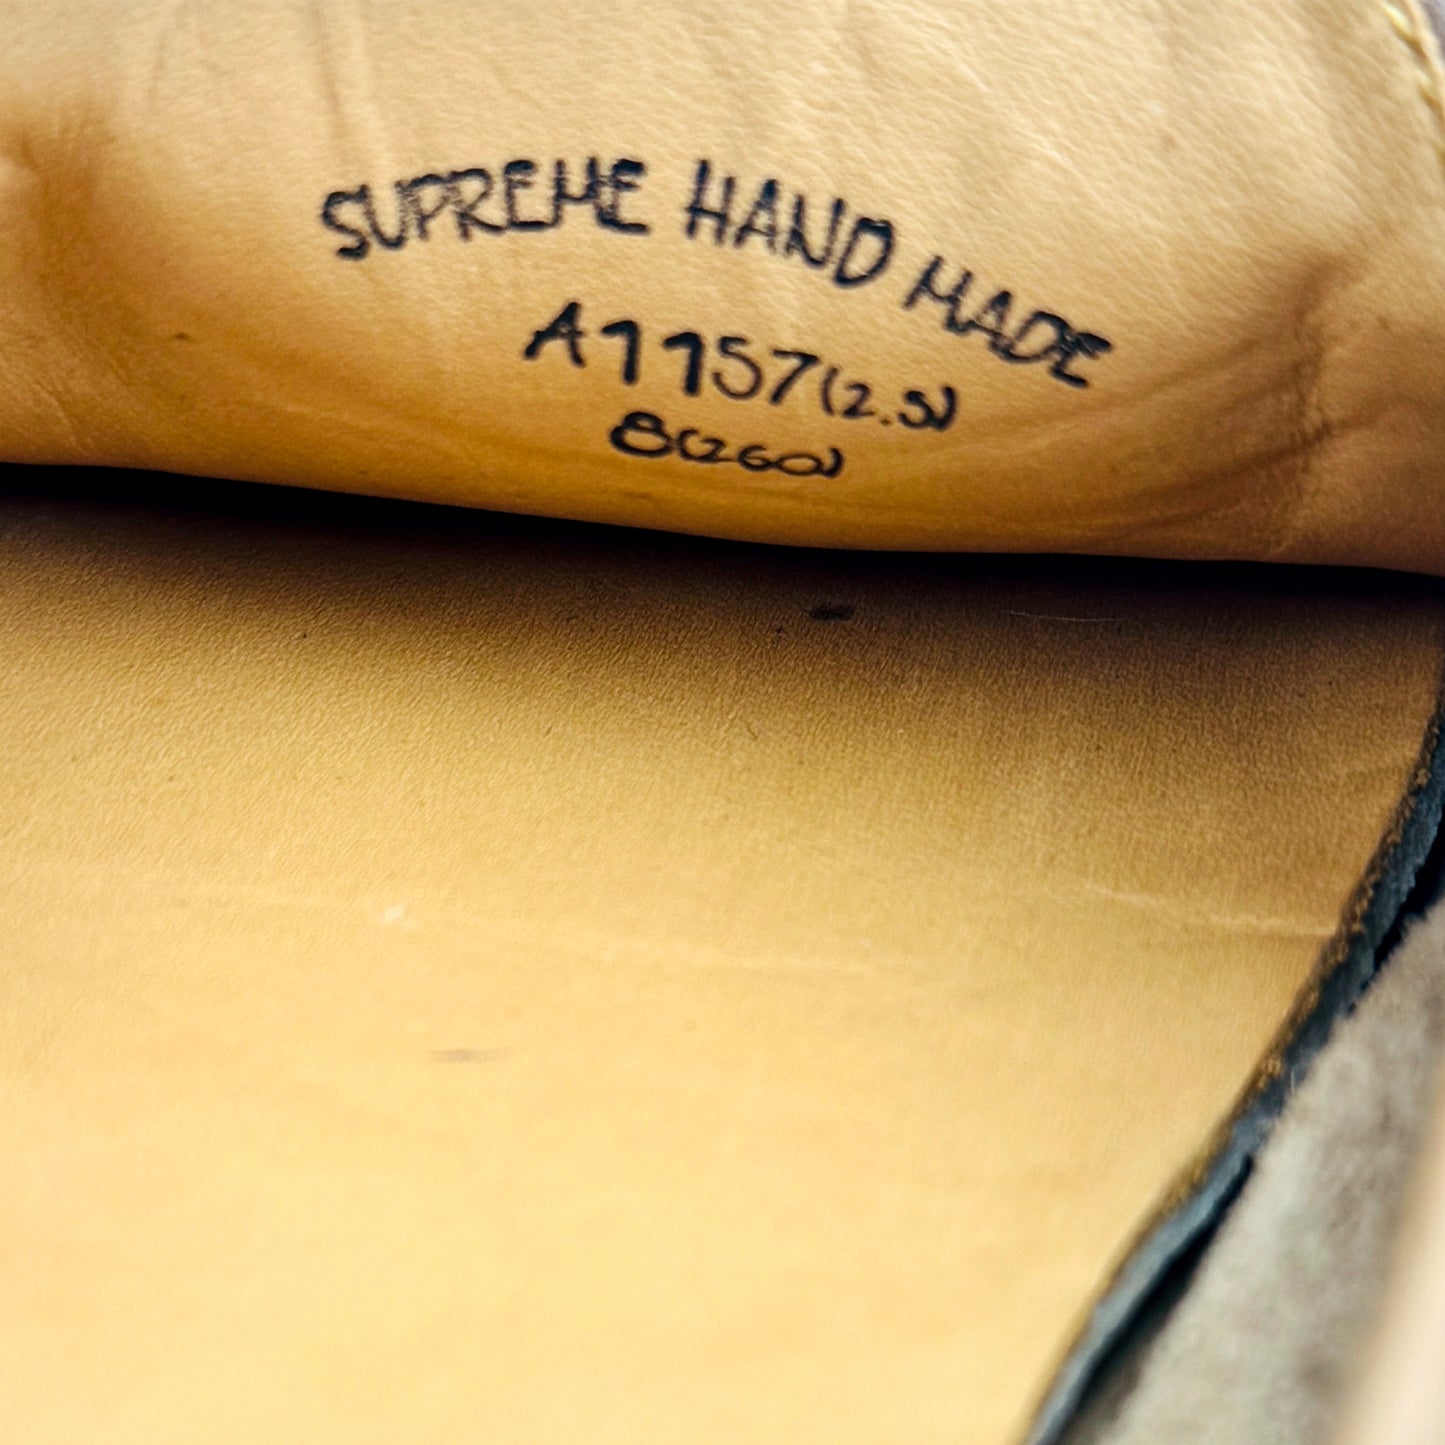 SUPREME HAND MADE
A1157(2.5)
8(260)